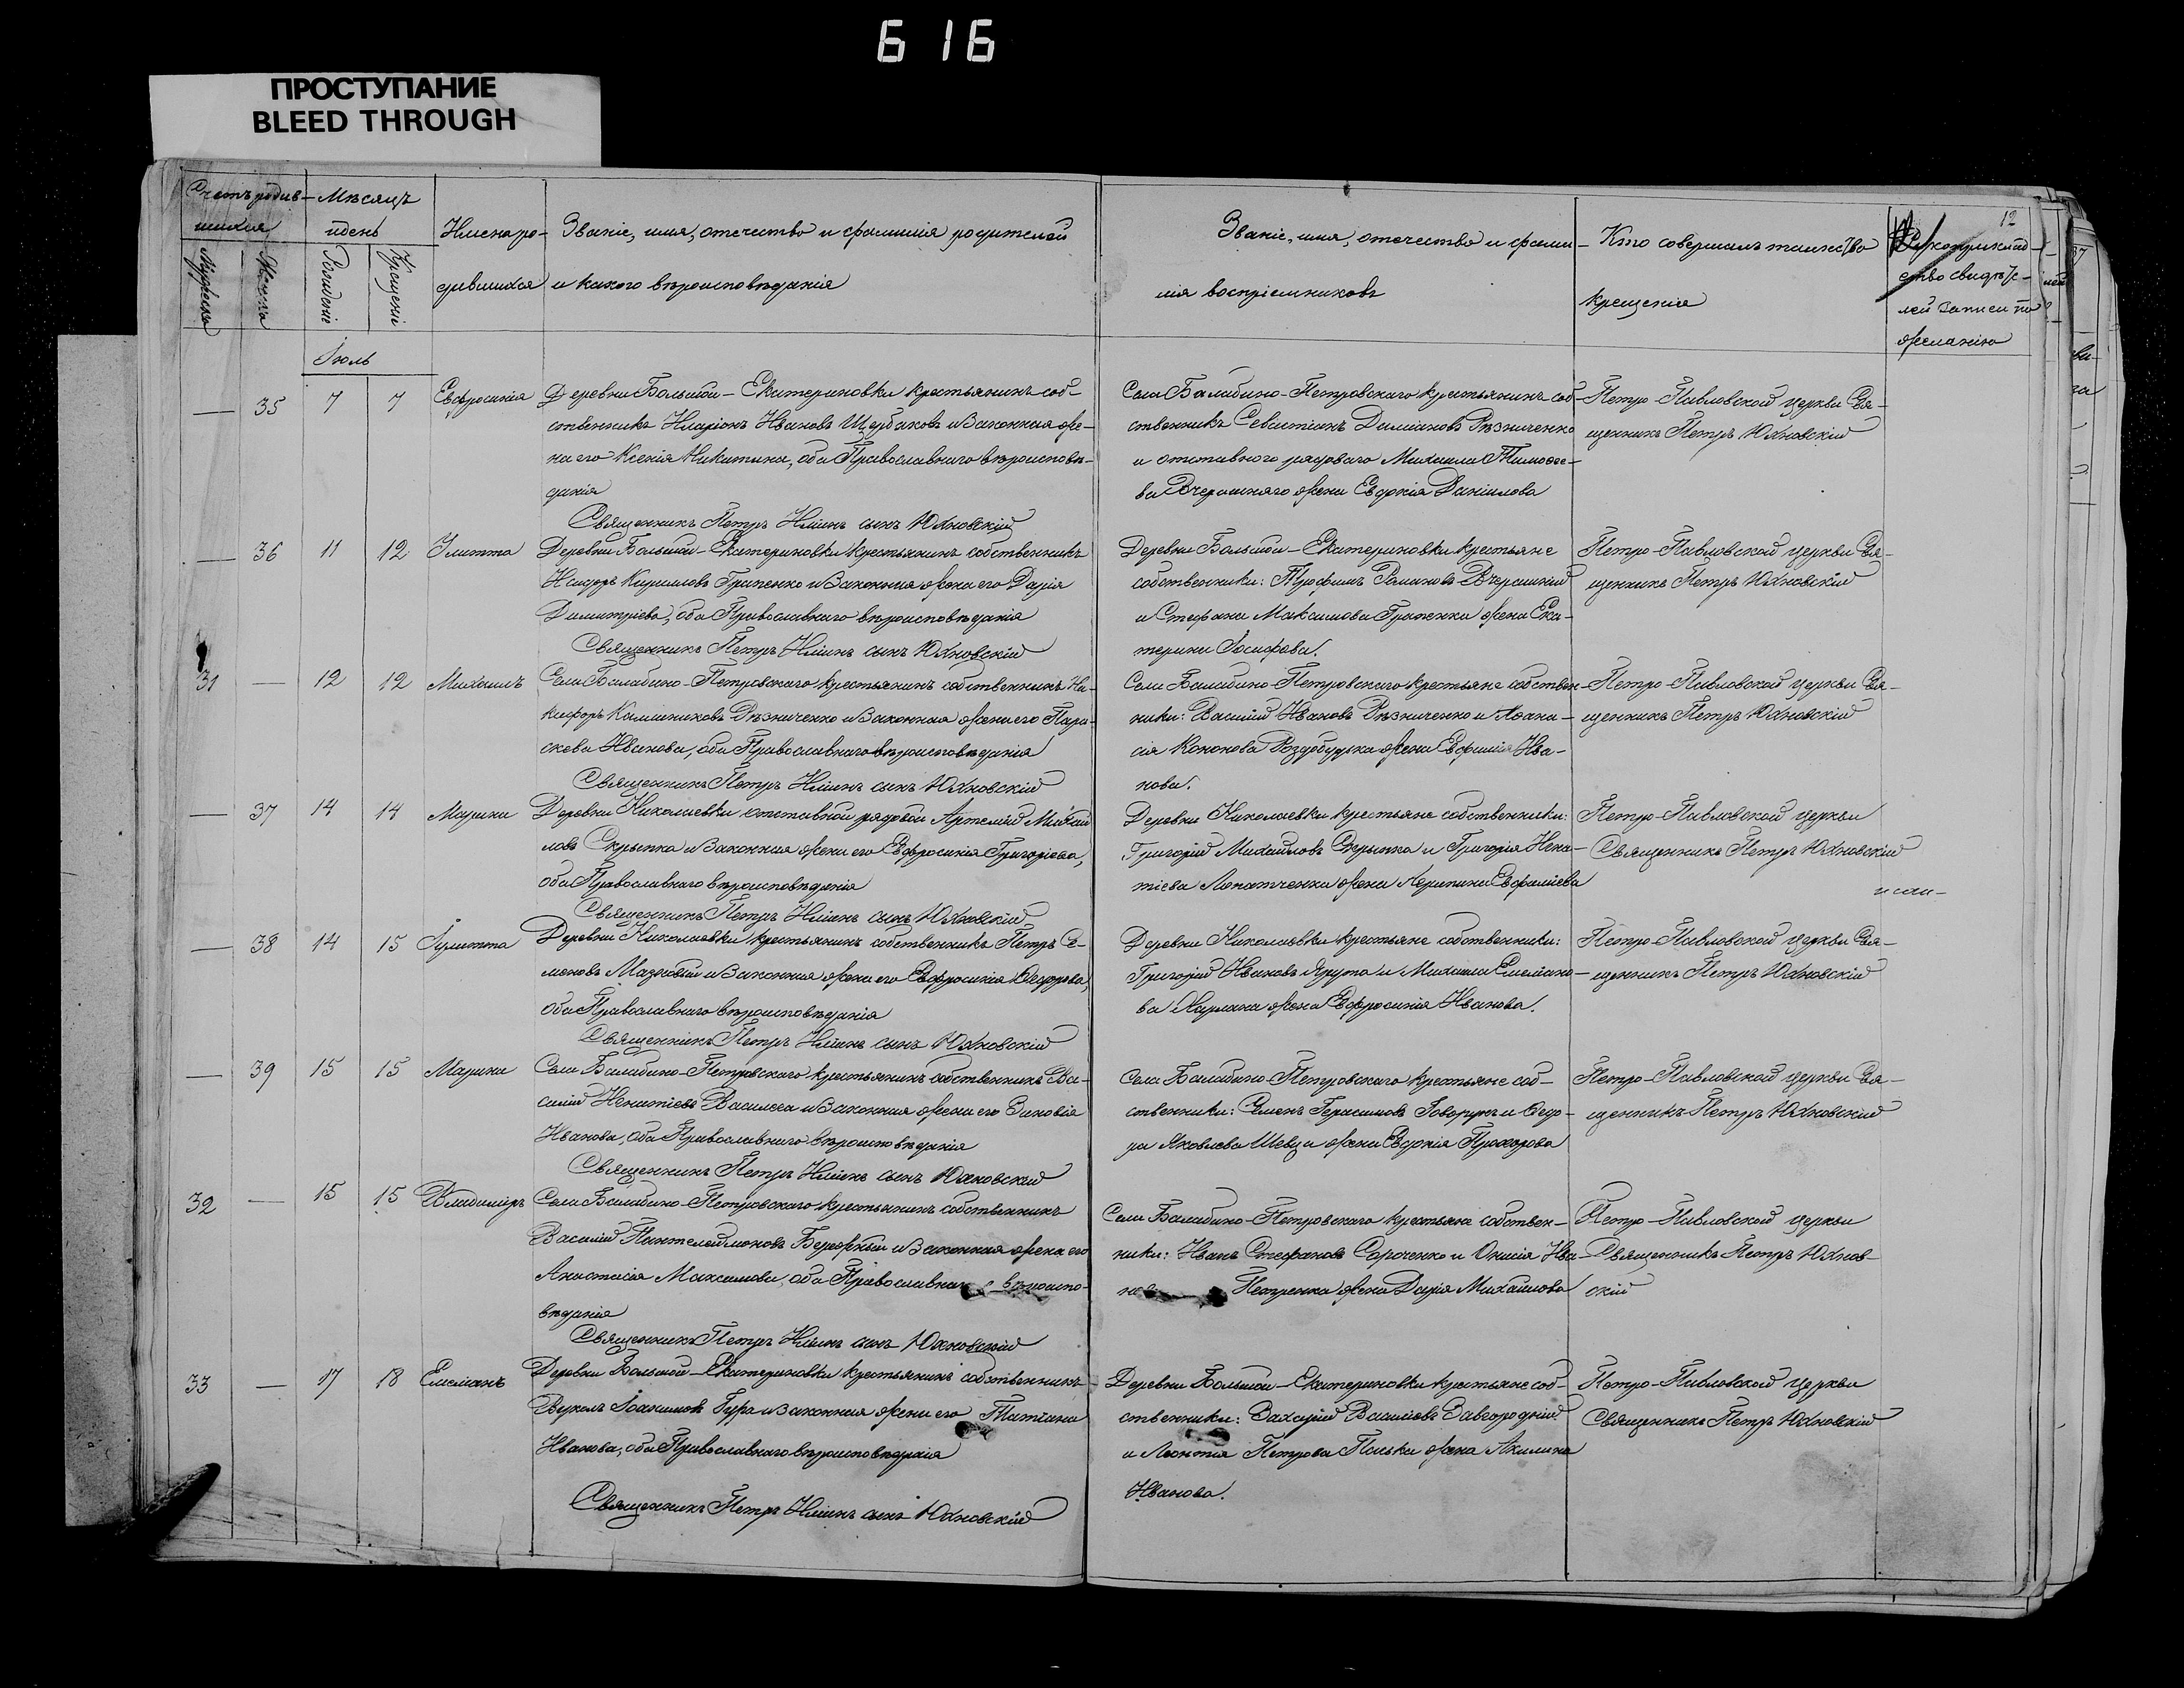 616
ПРОСТУПАНИЕ
BLEED THROUGH
12
Счетъ родив-
шихся
Мѣсяцъ
и день
Мужеска
Женска
Рожденіе
Крещеніе
Имена ро-
дившихся
Званіе, имя, отечество и фамилія родителей
и какого вѣроисповѣданія
Званіе, имя, отечество и фами-
лія воспріемниковъ
Кто совершалъ таинство
крещенія
Рукоприклад-
ство свидѣте-
лей записи по
желанію
Іюль
— 35 7 7 Евфросинія
Деревни Большой-Екатериновки крестьянинъ соб-
ственникъ Иларіонъ Ивановъ Щербаковъ и законная же-
на его Ксенія Никитина, оба Православнаго вѣроисповѣ-
данія
Священникъ Петръ Иліинъ сынъ Юхновскій
Села Балабино-Петровскаго крестьянинъ соб-
ственникъ Севастіанъ Даміановъ Рѣзниченко
и отставного рядоваго Михаила Тимофее-
ва Вчерашняго жена Евдокія Даніилова
Петро-Павловской церкви Свя-
щенникъ Петръ Юхновскій
— 36 11 12 Улитта
Деревни Большой-Екатериновки крестьянинъ собственникъ
Кириловъ Грипенко и законная жена его Дарія
Димитріева, оба Православнаго вѣроисповѣданія
Священникъ Петръ Иліинъ сынъ Юхновскій
Деревни Большой-Екатериновки крестьяне
собственники: Трофимъ Романовъ Вчерашній
и Стефана Максимова Грипенка жена Ека-
терина Іосифова.
Петро-Павловской церкви Свя-
щенникъ Петръ Юхновскій
31 — 12 12 Михаилъ
Села Балабино-Петровскаго крестьянинъ собственникъ Ни-
кифоръ Калиниковъ Рѣзниченко и законная жена его Пара-
скева Иванова, оба Православнаго вѣроисповѣданія
Священникъ Петръ Иліинъ сынъ Юхновскій
Села Балабино-Петровскаго крестьяне собствен-
ники: Василій Ивановъ Рѣзниченко и Афана-
сія Кононова Роздобудька жена Евфимія Ива-
нова.
Петро-Павловской церкви Свя-
щенникъ Петръ Юхновскій
— 37 14 14 Марина
Деревни Николаевки отставной рядовой Артемій Михай-
ловъ Скрыпка и законная жена его Евфросинія Григоріева,
оба Православнаго вѣроисповѣданія
Священникъ Петръ Иліинъ сынъ Юхновскій
Деревни Николаевки крестьяне собственники:
Григорій Михайловъ Скрыпка и Григорія Игна-
тіева Лопатченка жена Агрипина Евфиміева
Петро-Павловской церкви
Священникъ Петръ Юхновскій
— 38 14 15 Іулитта
Деревни Николаевки крестьянинъ собственникъ Петръ Се-
меновъ и законная жена его Евфросинія Феодорова,
оба Православнаго вѣроисповѣданія
Священникъ Петръ Иліинъ сынъ Юхновскій
Деревни Николаевки крестьяне собственники:
Григорій Ивановъ Ярута и Михаила Емеліано-
ва жена Евфросинія Иванова.
Петро-Павловской церкви Свя-
щенникъ Петръ Юхновскій
— 39 15 15 Марина
Села Балабино-Петровскаго крестьянинъ собственникъ Ва-
силій Игнатіевъ Василега и законная жена его Зиновія
Иванова, оба Православнаго вѣроисповѣданія
Священникъ Петръ Иліинъ сынъ Юхновскій
Села Балабино-Петровскаго крестьяне соб-
ственники: Семенъ Герасимовъ Говорунъ и Федо-
ра Яковлева Шевца жена Евдокія Прохорова
Петро-Павловской церкви Свя-
щенникъ Петръ Юхновскій
32 — 15 15 Владиміръ
Села Балабино-Петровскаго крестьянинъ собственникъ
Василій Пантелеймоновъ Бережный и законная жена его
Анастасія Максимова, оба Православнаго вѣроиспо-
вѣданія
Священникъ Петръ Иліинъ сынъ Юхновскій
Села Балабино-Петровскаго крестьяне собствен-
ники: Иванъ Стефановъ Сороченко и Онисія Ива-
нова Петренка жена Дарія Михайлова
Петро-Павловской церкви
Священникъ Петръ Юхнов-
скій
33 — 17 18 Емеліанъ
Деревни Большой-Екатериновки крестьянинъ собственникъ
Вуколъ Іоакимовъ Гура и законная жена его Татіана
Иванова, оба Православнаго вѣроисповѣданія
Священникъ Петръ Иліинъ сынъ Юхновскій
Деревни Большой-Екатериновки крестьяне соб-
ственники: Захарій Василіевъ Завгородній
и Леонтія Петрова жена Акилина
Иванова.
Петро-Павловской церкви
Священникъ Петръ Юхновскій